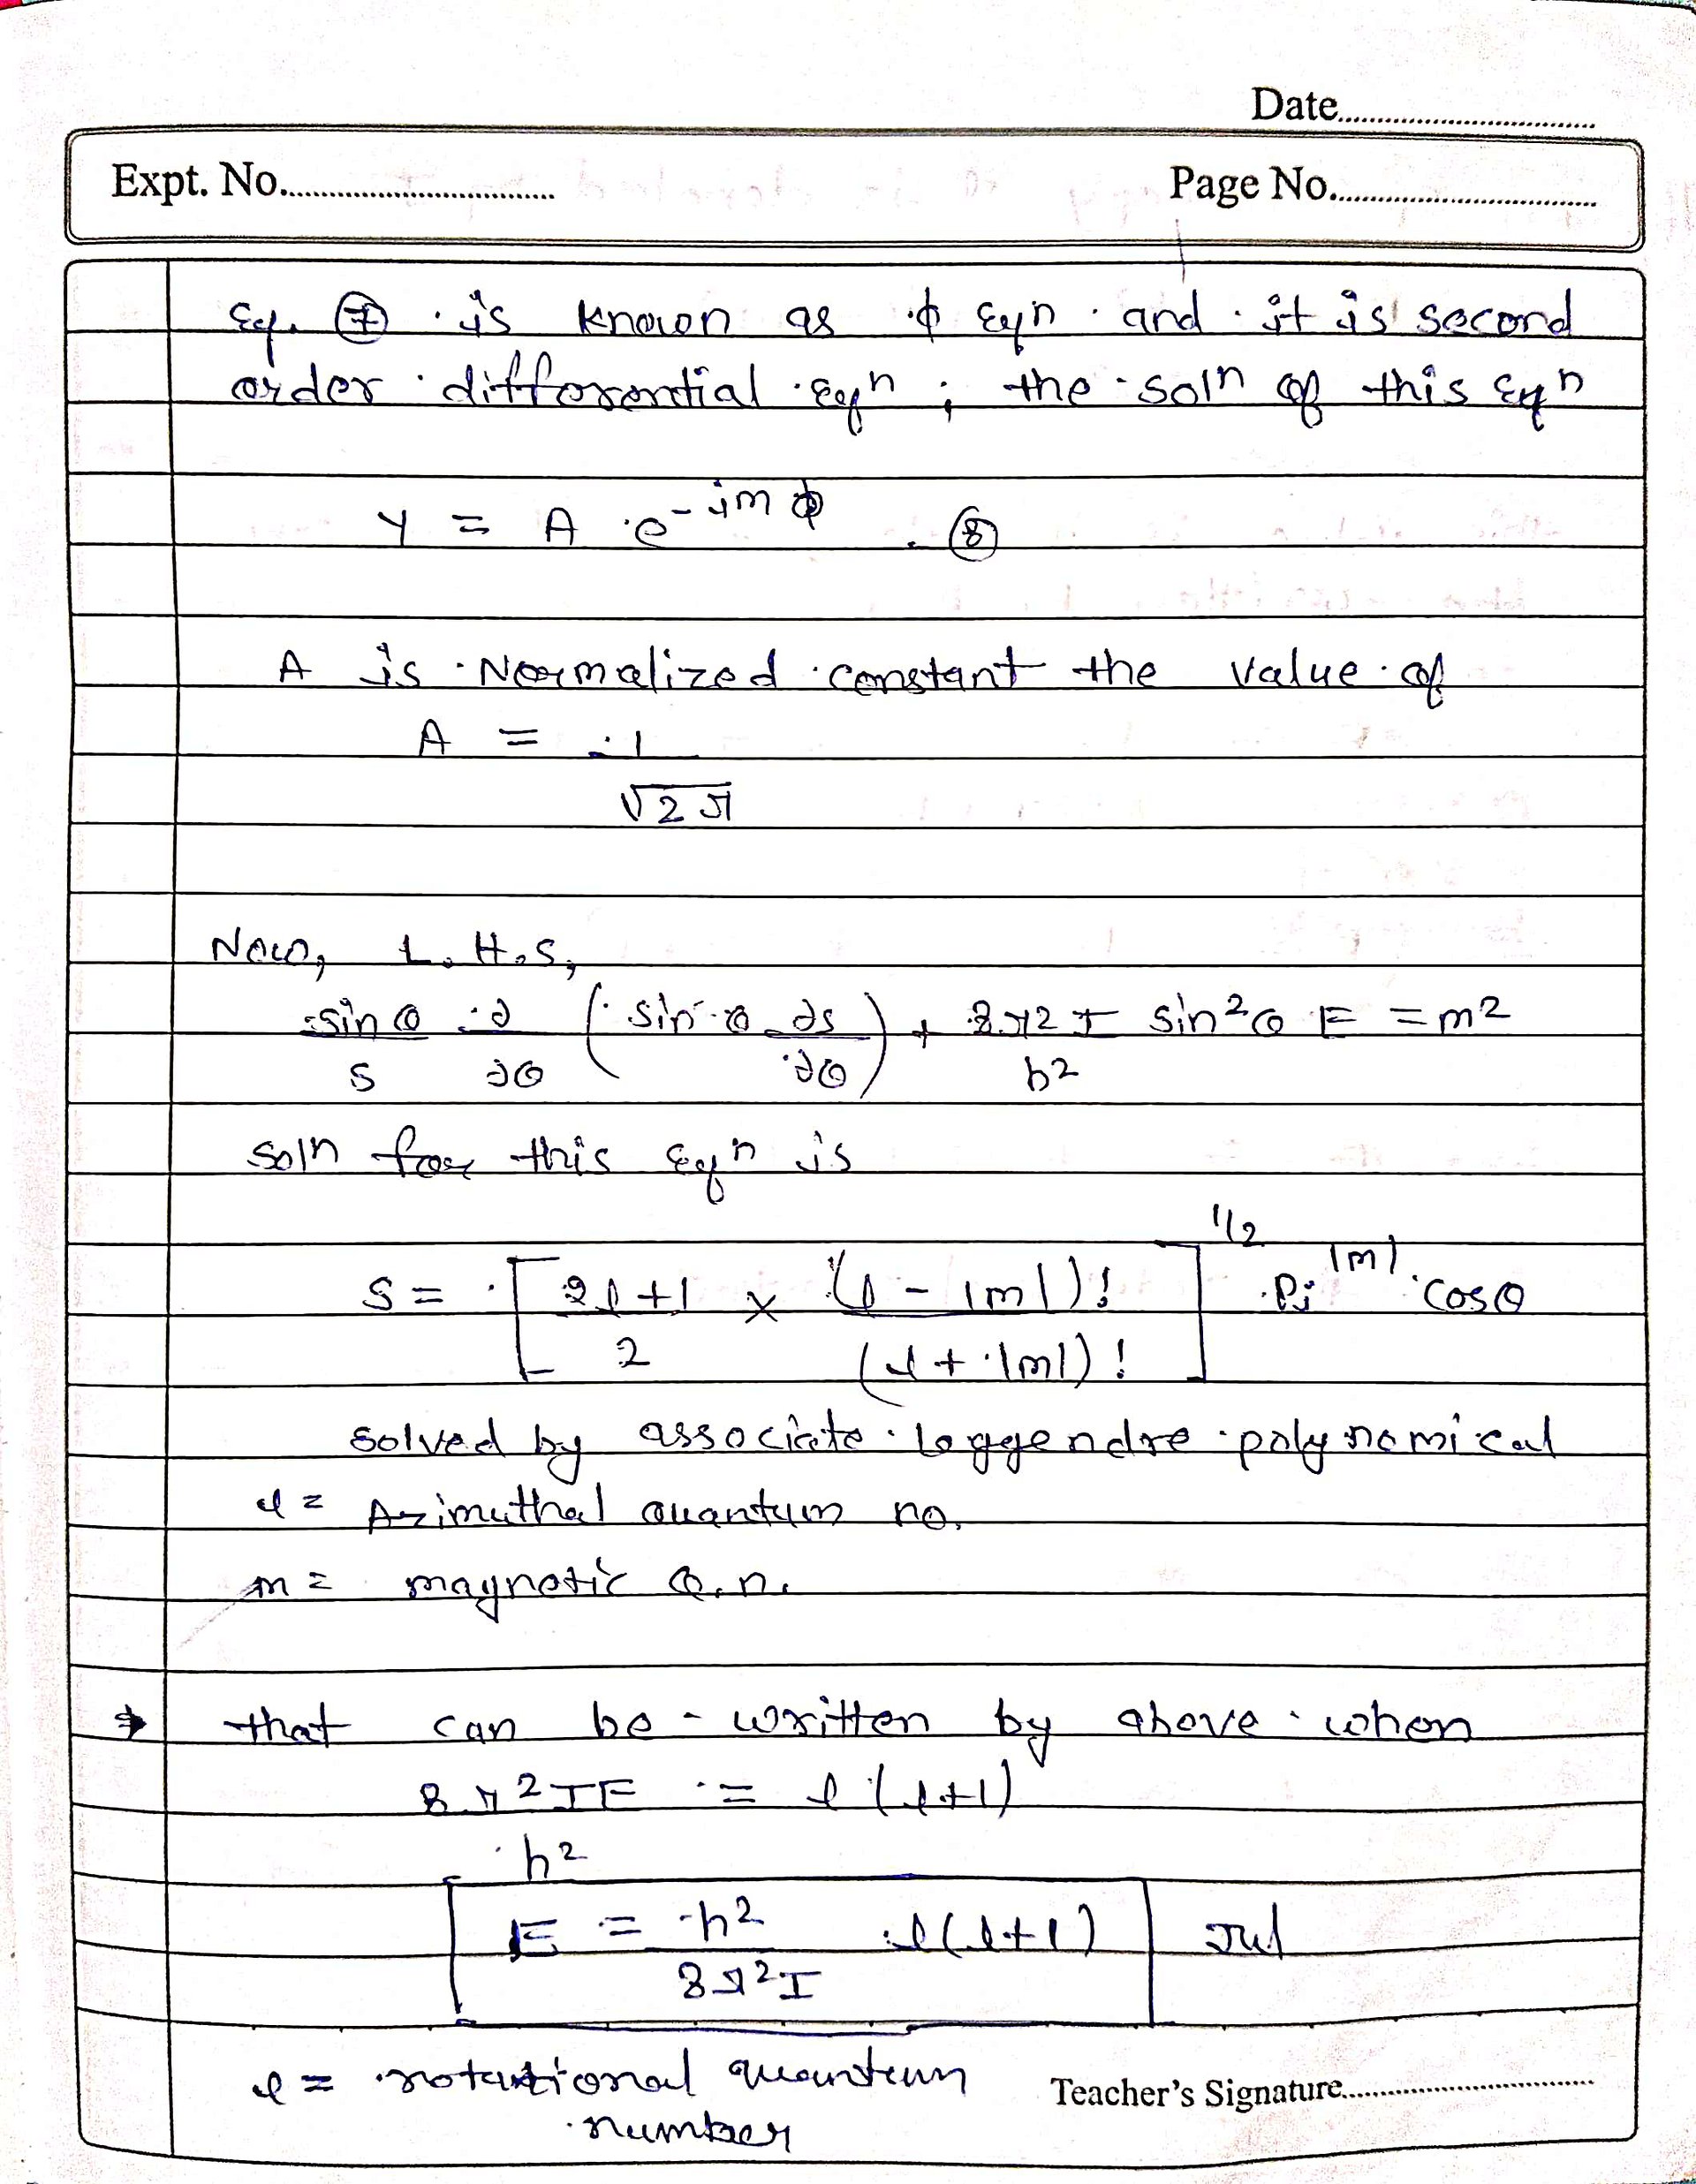 Date..............................
Expt. No..............................
Page No..............................
Eq. ⑦ is known as ϕ Eqn and it is second
order differential Eqn ; the soln of this Eqn
Y = A e^{-imϕ} ⑧
A is Normalized constant the value of
A = 1
√2π
Now, L.H.S,
sinθ ∂ ( sinθ ∂s ) + 8π2 I sin²θ E = m²
s ∂θ ∂θ h²
soln for this Eqn is
S = [ 2l+1 × (l - |m|)! ]^{1/2} Pi^{|m|} cosθ
2 (l + |m|)!
solved by associate leggendre polynomical
l = Azimuthal Quantum no.
m = magnetic Q.n.
→ that can be written by above when
8π²IE = l(l+1)
h²
E = h² l(l+1) Jul
8π²I
l = rotational quantum
Teacher's Signature..............................
number